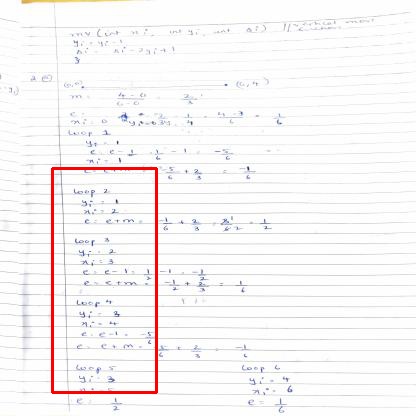 mv (int xi, int yi, int Δi) // vertical move
yi = yi - 1
Δi = Δi - 2yi + 1
}
2 (a) (0,0) (6,4)
m = 4-0/6-0 = 2/3
xi = 0
loop 1
yi = 1
e = e - 1 = 1/6 - 1 = -5/6
xi = 1
e = e + m = -5/6 + 2/3 = -1/6
loop 2
yi = 1
xi = 2
e = e + m = -1/6 + 2/3 = 1/2
loop 3
yi = 2
xi = 3
e = e - 1 = 1/2 - 1 = -1/2
e = e + m = -1/2 + 2/3 = 1/6
loop 4
yi = 3
xi = 4
e = e - 1 = -5/6
e = e + m = -5/6 + 2/3 = -1/6
loop 5 loop 6
yi = 3 yi = 4
xi = 5 xi = 6
e = 1/2 e = 1/6